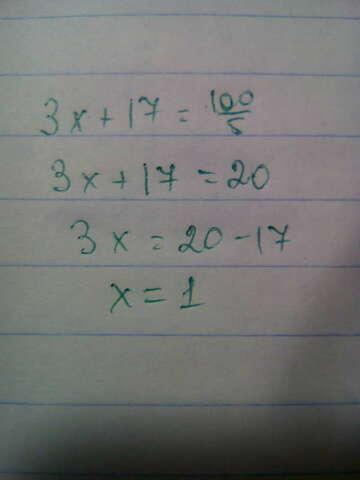 3x+17=100/5
3x+17=20
3x=20-17
x=1